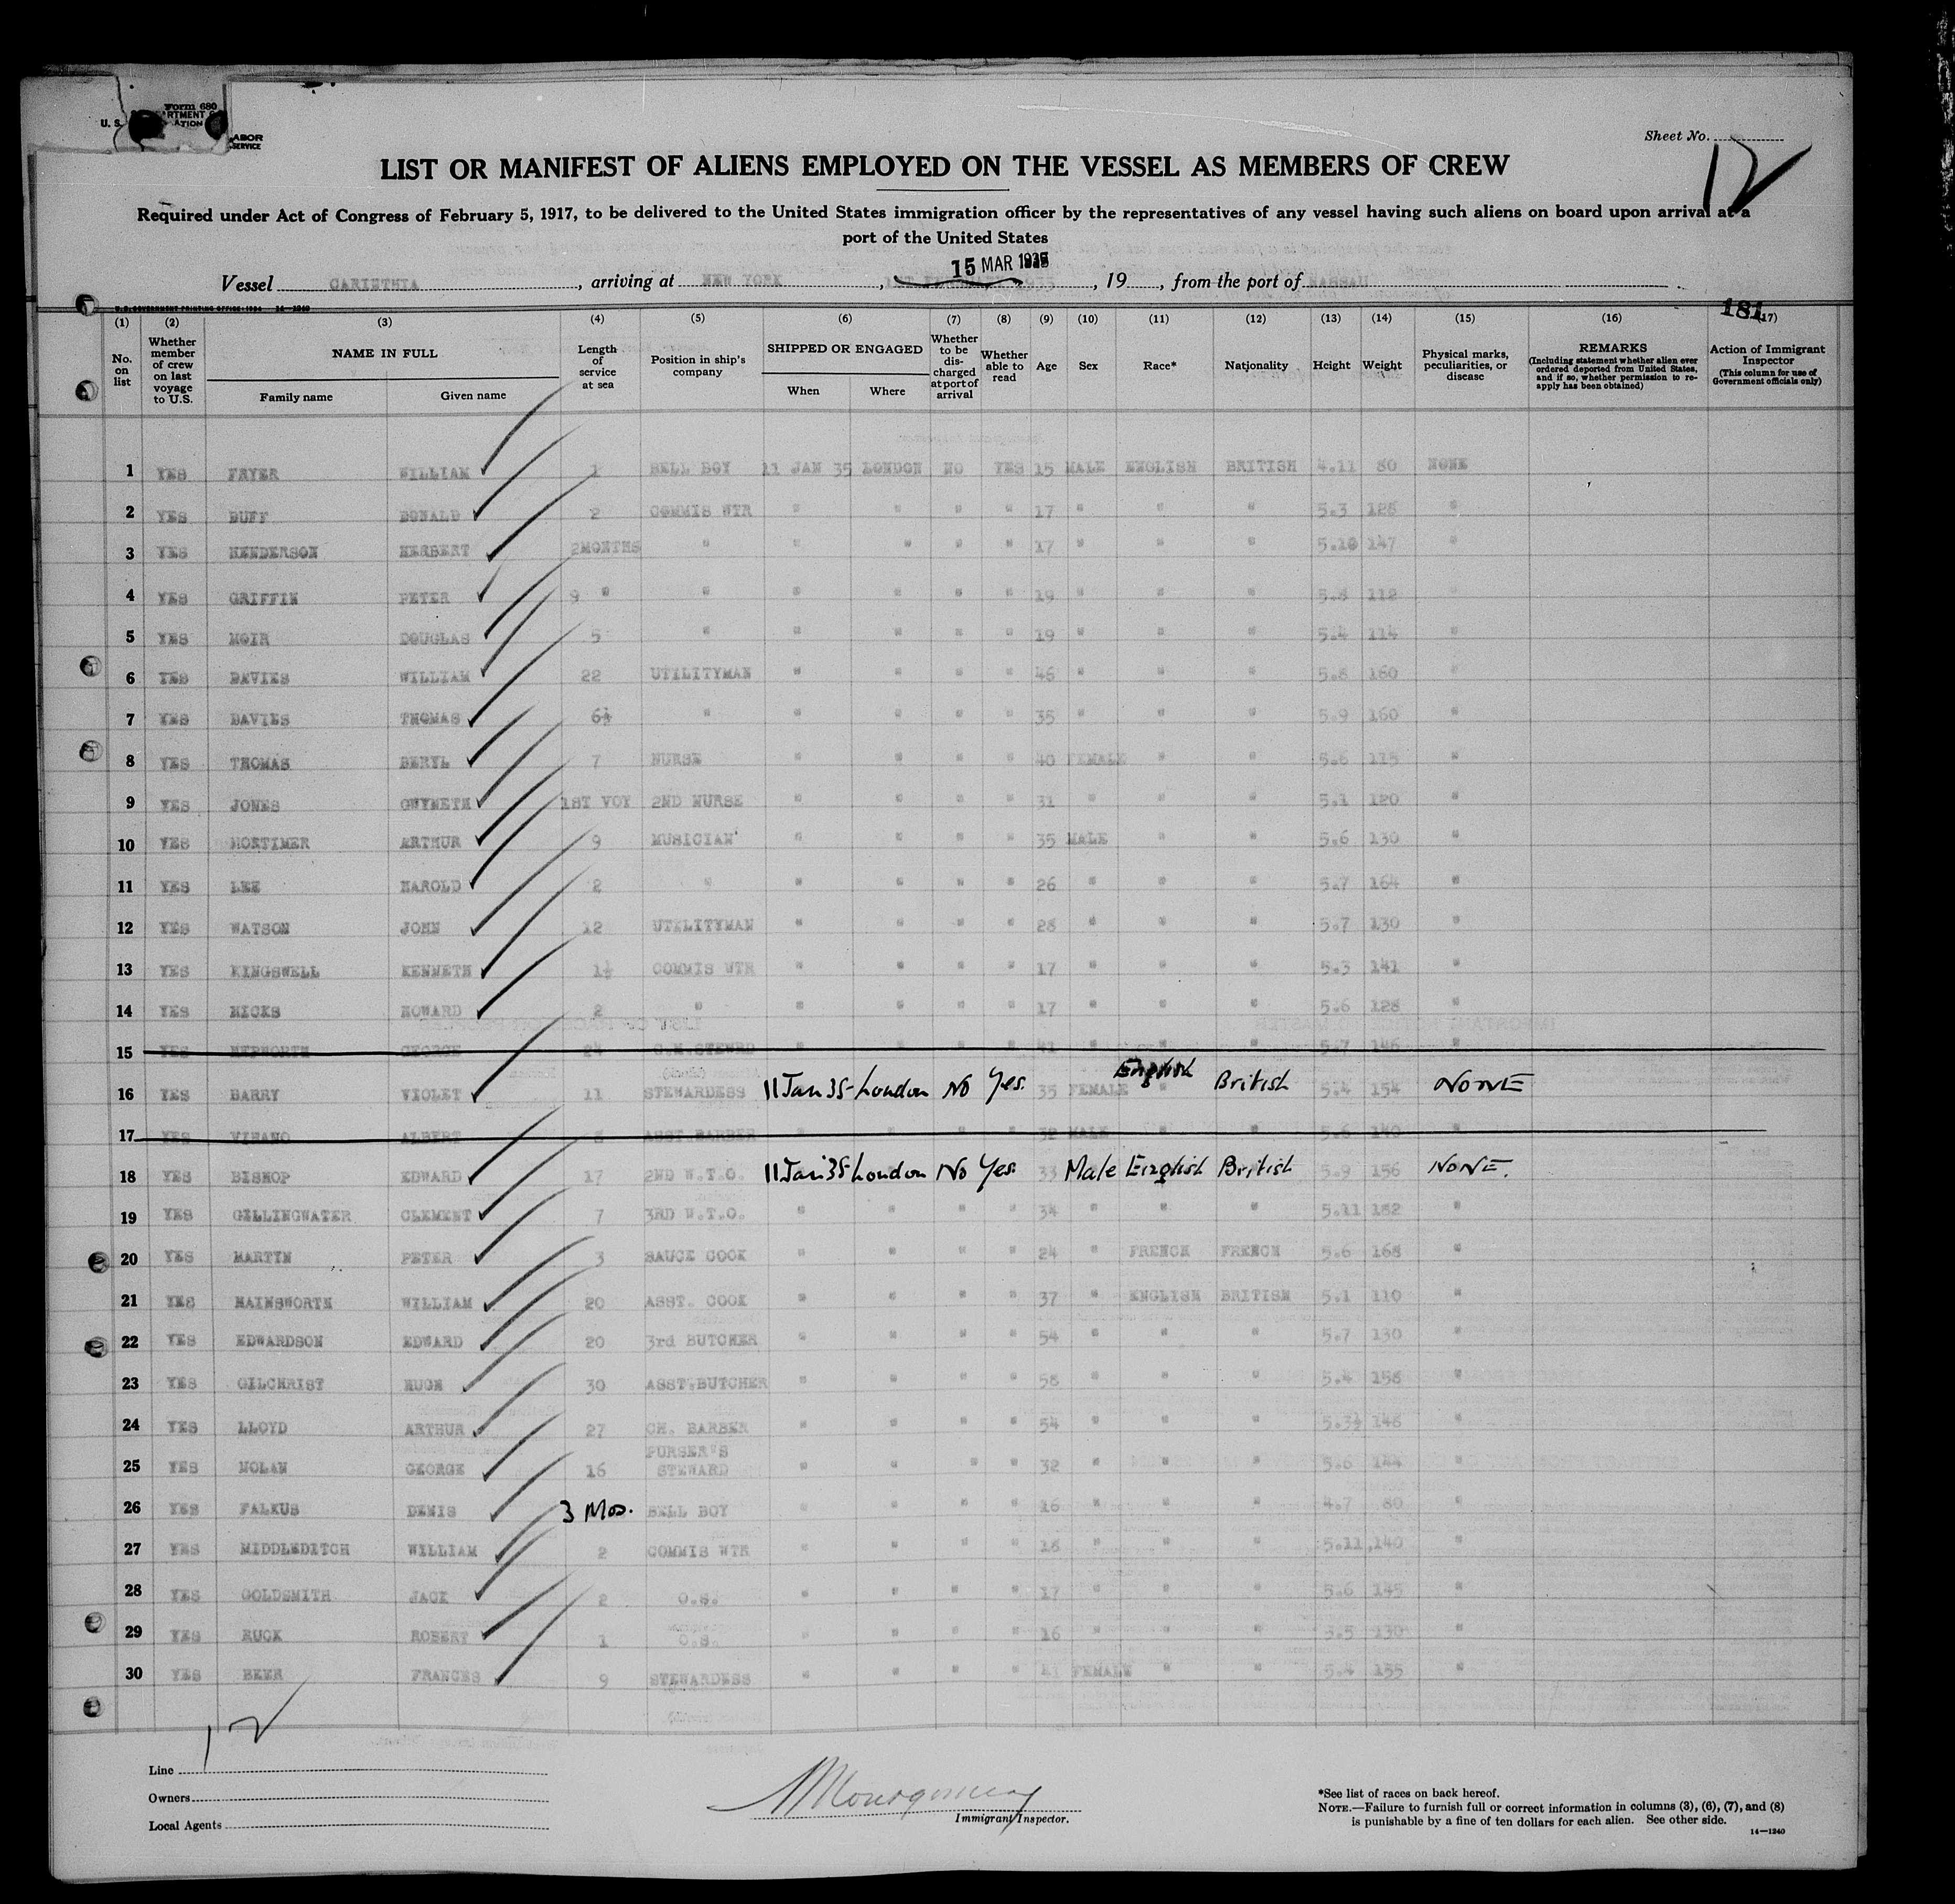 Form 680
U. S. DEPARTMENT OF LABOR
IMMIGRATION SERVICE
Sheet No. 12
LIST OR MANIFEST OF ALIENS EMPLOYED ON THE VESSEL AS MEMBERS OF CREW
Required under Act of Congress of February 5, 1917, to be delivered to the United States immigration officer by the representatives of any vessel having such aliens on board upon arrival at a
port of the United States
15 MAR 1935
Vessel CARINTHIA, arriving at NEW YORK, 1935, 19, from the port of NASSAU
U. S. GOVERNMENT PRINTING OFFICE : 1934 14—1240
181
(1) (2) (3) (4) (5) (6) (7) (8) (9) (10) (11) (12) (13) (14) (15) (16) (17)
No. on list
Whether member of crew on last voyage to U.S.
NAME IN FULL
Family name Given name
Length of service at sea
Position in ship's company
SHIPPED OR ENGAGED
When Where
Whether to be discharged at port of arrival
Whether able to read
Age
Sex
Race*
Nationality
Height
Weight
Physical marks, peculiarities, or disease
REMARKS (Including statement whether alien ever ordered deported from United States, and if so, whether permission to re-apply has been obtained)
Action of Immigrant Inspector (This column for use of Government officials only)
1 YES FRYER WILLIAM 1 BELL BOY 11 JAN 35 LONDON NO YES 15 MALE ENGLISH BRITISH 4.11 80 NONE
2 YES DUFF DONALD 2 COMMIS WTR " " " " 17 " " " 5.3 128 "
3 YES HENDERSON HERBERT 2MONTHS " " " " " 17 " " " 5.10 147 "
4 YES GRIFFIN PETER 9 " " " " " " 19 " " " 5.8 112 "
5 YES MOIR DOUGLAS 5 " " " " " 19 " " " 5.4 114 "
6 YES DAVIES WILLIAM 22 UTILITYMAN " " " " 46 " " " 5.8 160 "
7 YES DAVIES THOMAS 6½ " " " " " 35 " " " 5.9 160 "
8 YES THOMAS BERYL 7 NURSE " " " " 40 FEMALE " " 5.6 115 "
9 YES JONES GWYNETH 1ST VOY 2ND NURSE " " " " 31 " " " 5.1 120 "
10 YES MORTIMER ARTHUR 9 MUSICIAN " " " " 35 MALE " " 5.6 130 "
11 YES LEE HAROLD 2 " " " " " 26 " " " 5.7 164 "
12 YES WATSON JOHN 12 UTILITYMAN " " " " 28 " " " 5.7 130 "
13 YES KINGSWELL KENNETH 1½ COMMIS WTR " " " " 17 " " " 5.3 141 "
14 YES HICKS HOWARD 2 " " " " " 17 " " " 5.6 128 "
15 YES HEPWORTH GEORGE 24 " " " " 41 " " " 5.7 146 "
16 YES BARRY VIOLET 11 STEWARDESS 11 Jan 35 London No Yes. 35 FEMALE English British 5.4 154 NONE
17 YES ALBERT ASST BARBER " " " " 32 MALE " " 5.6 140 "
18 YES BISHOP EDWARD 17 2ND W.T.O. 11 Jan 35 London No Yes. 33 Male English British 5.9 156 NONE.
19 YES GILLINGWATER CLEMENT 7 3RD W.T.O. " " " " 34 " " " 5.11 182 "
20 YES MARTIN PETER 3 SAUCE COOK " " " " 24 " FRENCH FRENCH 5.6 168 "
21 YES HAINSWORTH WILLIAM 20 ASST. COOK " " " " 37 " ENGLISH BRITISH 5.1 110 "
22 YES EDWARDSON EDWARD 20 3rd BUTCHER " " " " 54 " " " 5.7 130 "
23 YES GILCHRIST HUGH 30 ASST.BUTCHER " " " " 58 " " " 5.4 158 "
24 YES LLOYD ARTHUR 27 CH. BARBER " " " " 54 " " " 5.3½ 148 "
25 YES NOLAN GEORGE 16 PURSER'S STEWARD " " " " 32 " " " 5.6 144 "
26 YES FALKUS DENIS 3 Mos. BELL BOY " " " " 16 " " " 4.7 80 "
27 YES MIDDLEDITCH WILLIAM 2 COMMIS WTR " " " " 18 " " " 5.11 140 "
28 YES GOLDSMITH JACK 2 O.S. " " " " 17 " " " 5.6 145 "
29 YES RUCK ROBERT 1 O.S. " " " " 16 " " " 5.5 130 "
30 YES BEER FRANCES 9 STEWARDESS " " " " 41 FEMALE " " 5.4 155 "
12
Line
Owners
Local Agents
Montgomery
Immigrant Inspector.
*See list of races on back hereof.
NOTE.—Failure to furnish full or correct information in columns (3), (6), (7), and (8)
is punishable by a fine of ten dollars for each alien. See other side.
14—1240